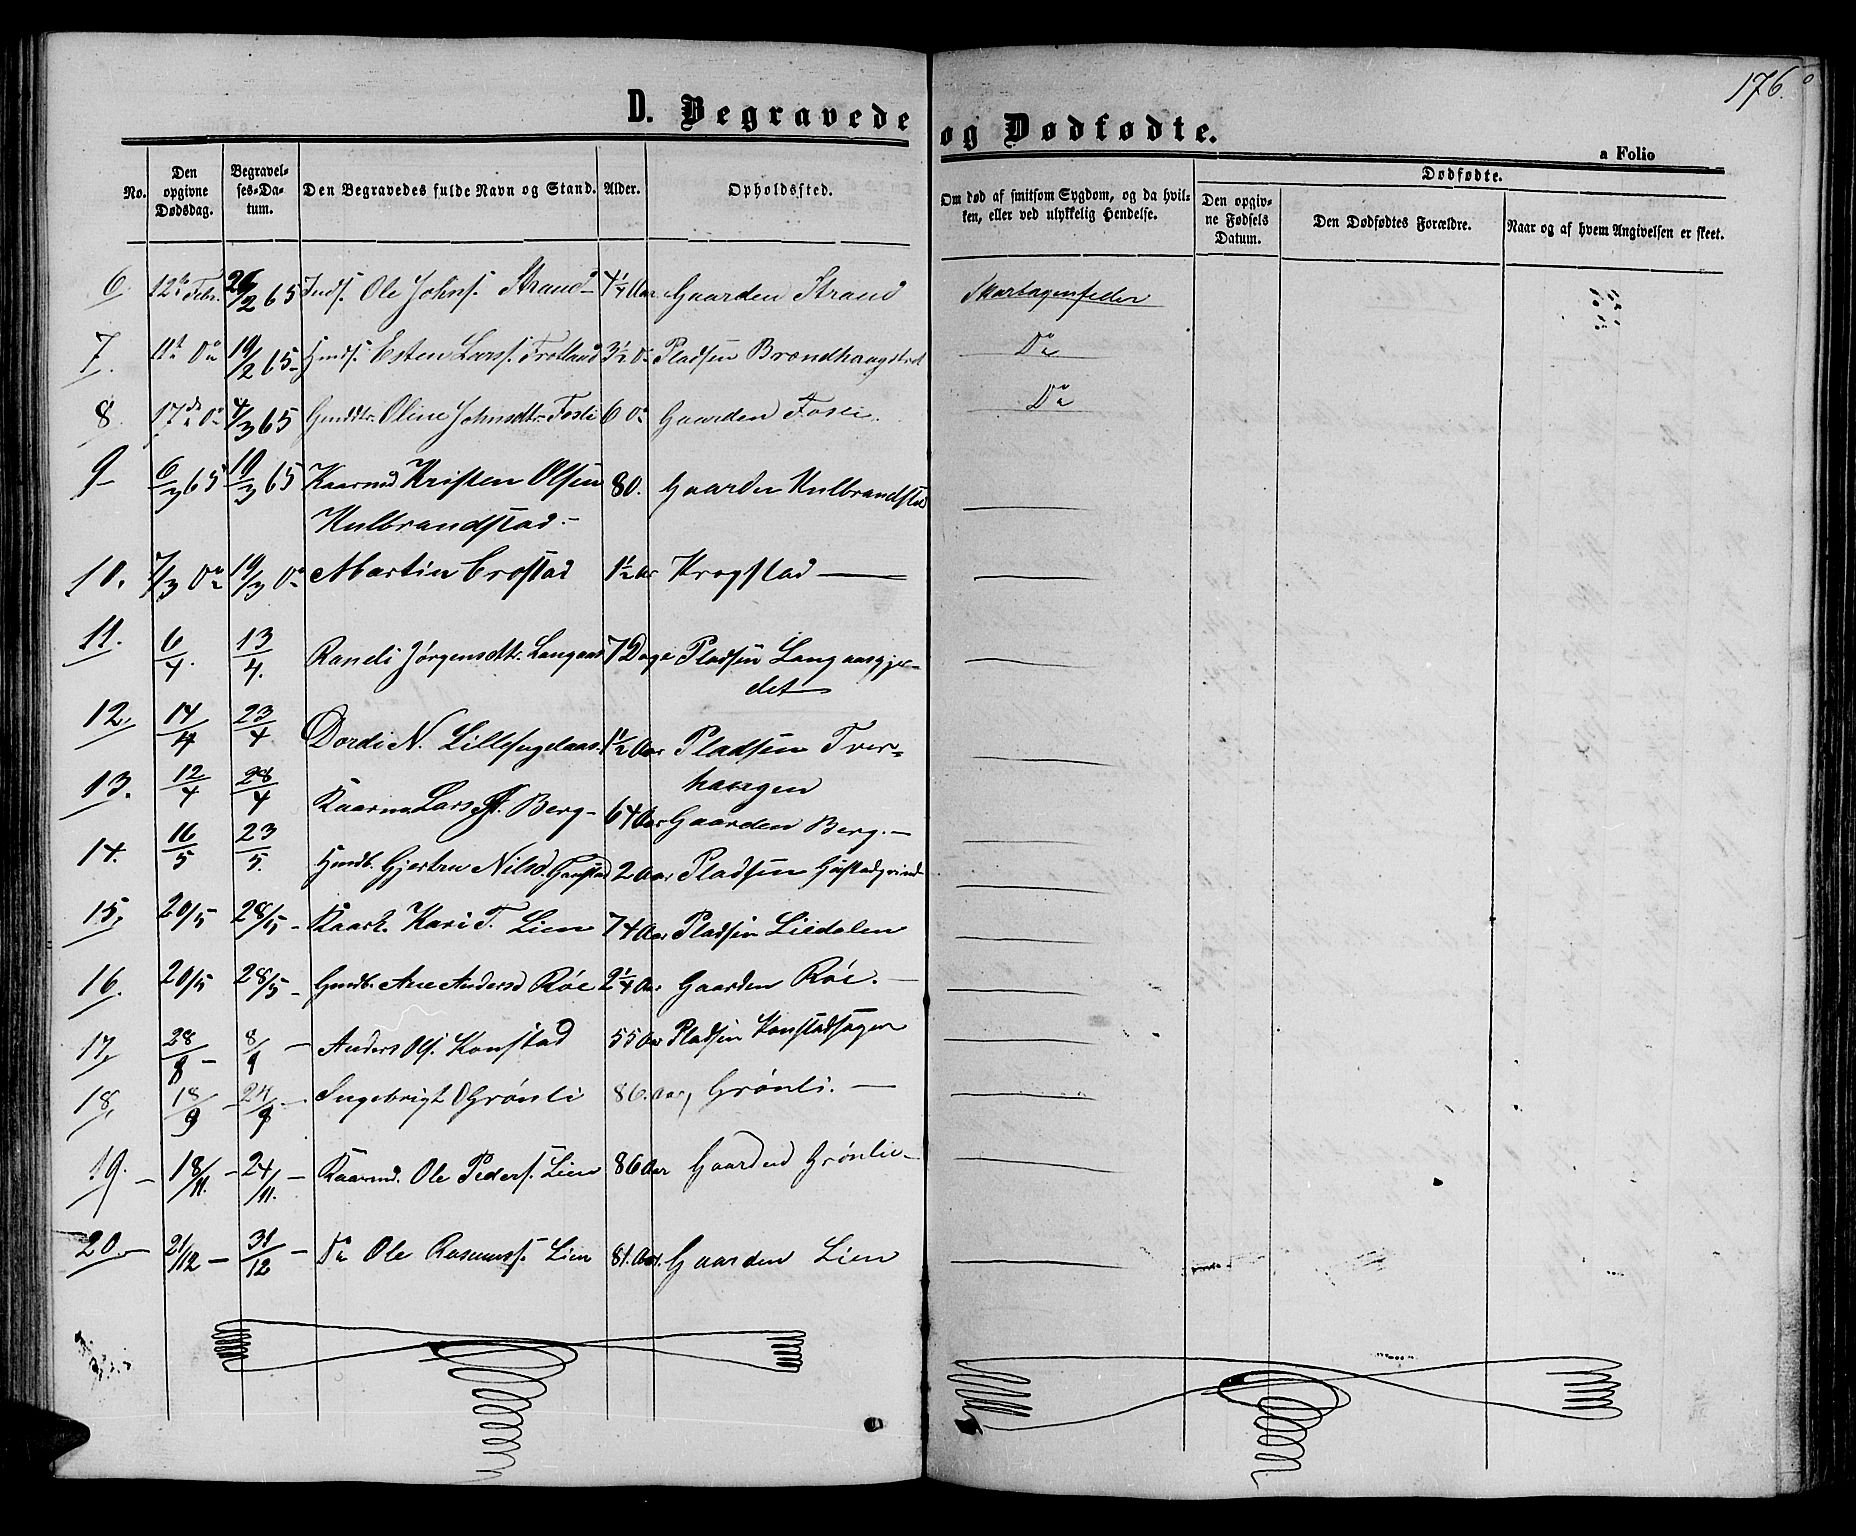 176.
D. Begravede og Dødfødte.
a Folio
No.
Den opgivne Dødsdag.
Begravelses-Datum.
Den Begravedes fulde Navn og Stand.
Alder.
Opholdssted.
Om død af smitsom Sygdom, og da hvilken, eller ved ulykkelig Hendelse.
Dødfødte.
Den opgivne Fødsels Datum.
Den Dødfødtes Forældre.
Naar og af hvem Angivelsen er skeet.
6. 12te Febr. 26/2 65 Inds. Ole Johns. Strand 4 1/4 Aar Gaarden Strand
7. 11te Do 19/2 65 Esten Larss. 3 1/2 Do Pladsen Do
8. 17de Do 4/3 65 Oline Johnsdtr. Fosli 6 Do Gaarden Do
9 6/3 65 19/3 65 Kaarmd Kristen Olsen 80. Gaarden Kulbrandstad
Kulbrandstad.
10. 7/3 Do 19/3 Do Martin 1 1/2 Aar Krogstad
11. 6/4. 13/4. Randi Jørgensdtr. Langaas 7 Dage Pladsen Langaasgjerdet
12. 14/4 23/4 Dordi N. 1 1/2 Aar Pladsen Tverhaugen
13. 12/4 28/4 Kaarmd Lars Berg 64 Aar Gaarden Berg.
14. 16/5 23/5. Gjertru Nilsd. 2 Aar Pladsen
15. 20/5 28/5 Kaark. Kari T. Lien 74 Aar Pladsen Liedalen
16. 20/5 28/5 Ane Andersd Røe 2 1/4 Aar Gaarden Røe.
17. 28/8 8/9 Anders Ols. Konstad 55 Aar Pladsen
18. 18/9 24/9 Ingebrigt O Grønli 86. Aar, Grønli.
19. 18/11. 24/11. Kaarmd. Ole Peders. Lien 86 Aar Gaarden Grønlie
20. 21/12 31/12 Do Ole Rasmuss. Lien 81. Aar. Gaarden Lien